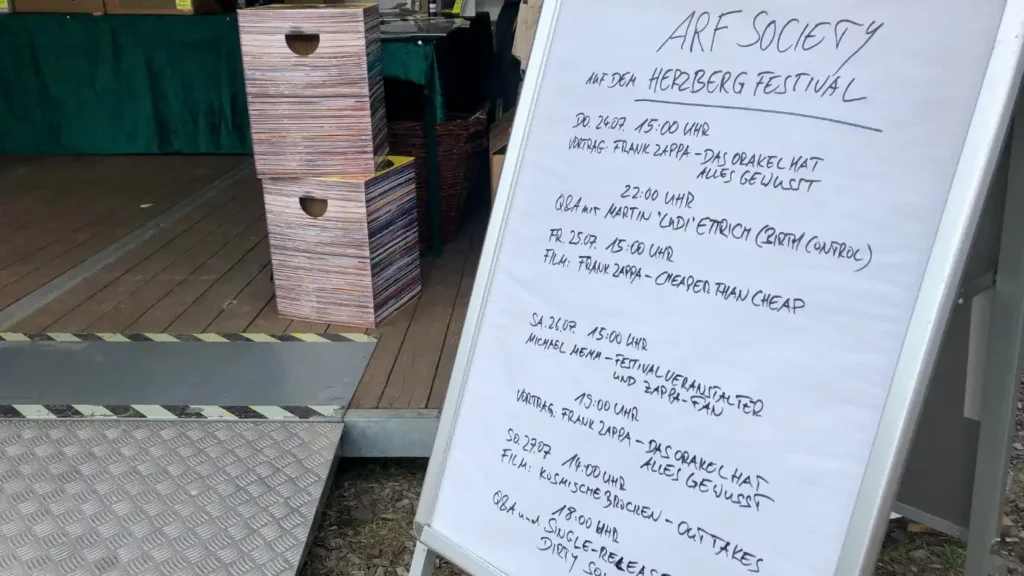 ARF SOCIETY
AUF DEM HERZBERG FESTIVAL
DO 24.07. 15:00 UHR
VORTRAG: FRANK ZAPPA - DAS ORAKEL HAT
ALLES GEWUSST
22:00 UHR
Q&A mit MARTIN 'LUDI' ETTRICH (BIRTH CONTROL)
FR. 25.07. 15:00 UHR
FILM: FRANK ZAPPA - CHEAPER THAN CHEAP
SA. 26.07. 15:00 UHR
MICHAEL MEMM - FESTIVALVERANSTALTER
UND ZAPPA-FAN
19:00 UHR
VORTRAG: FRANK ZAPPA - DAS ORAKEL HAT
ALLES GEWUSST
SO. 27.07 14:00 UHR
FILM: KOSMISCHE BRÜCKEN - OUTTAKES
18:00 UHR
Q&A und SINGLE-RELEASE
DIRTY